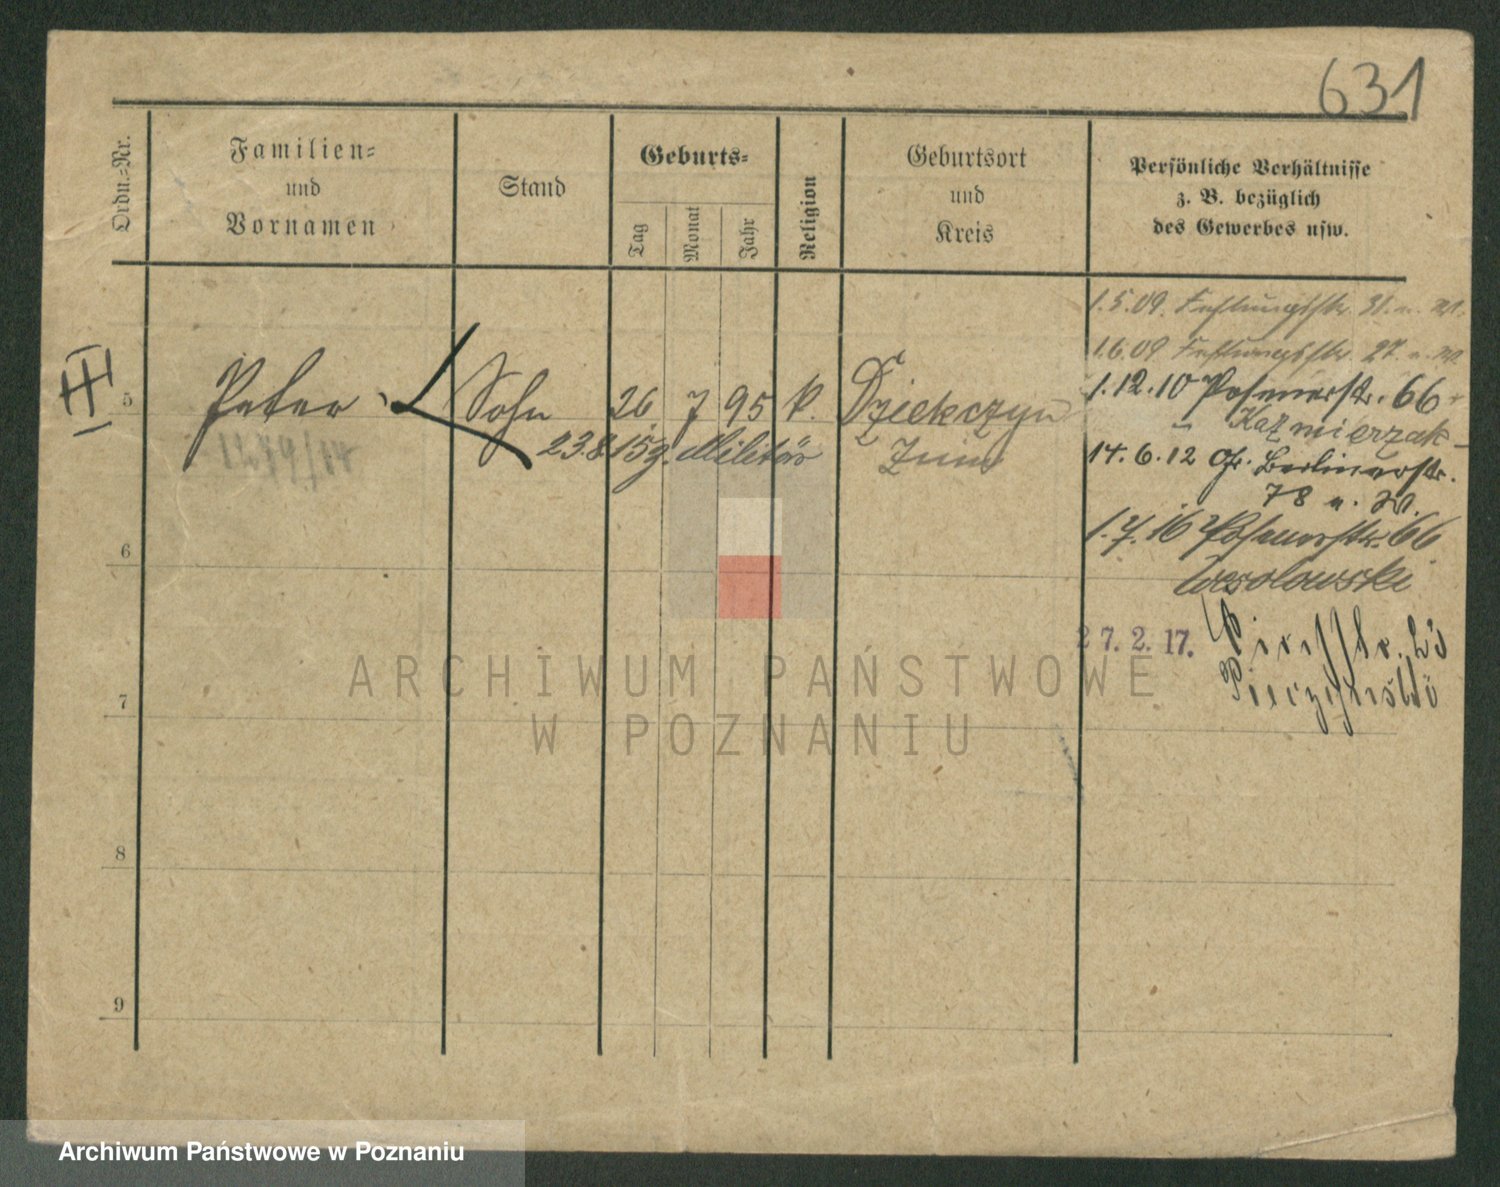 631
Ordn.=Nr.
Familien=
und
Vornamen
Stand
Geburts=
Tag
Monat
Jahr
Religion
Geburtsort
und
Kreis
Persönliche Verhältnisse
z. B. bezüglich
des Gewerbes usw.
1.5.09. Festungsstr. 31. u. W.
1.6.09 Festungsstr. 27. u. W.
III
5
Peter
Sohn
26 7 95 k.
Dziekczyn
1.12.10 Posenerstr. 66
Kaźmierzak
1279/14
23.8.15 z. Militär
Znin
14.6.12 Gr. Berlinerstr.
78 u. W.
1.7.16 Posenerstr. 66
Wesolowski
6
27.2.17.
23
7
8
9
ARCHIWUM PAŃSTWOWE
W POZNANIU
Archiwum Państwowe w Poznaniu